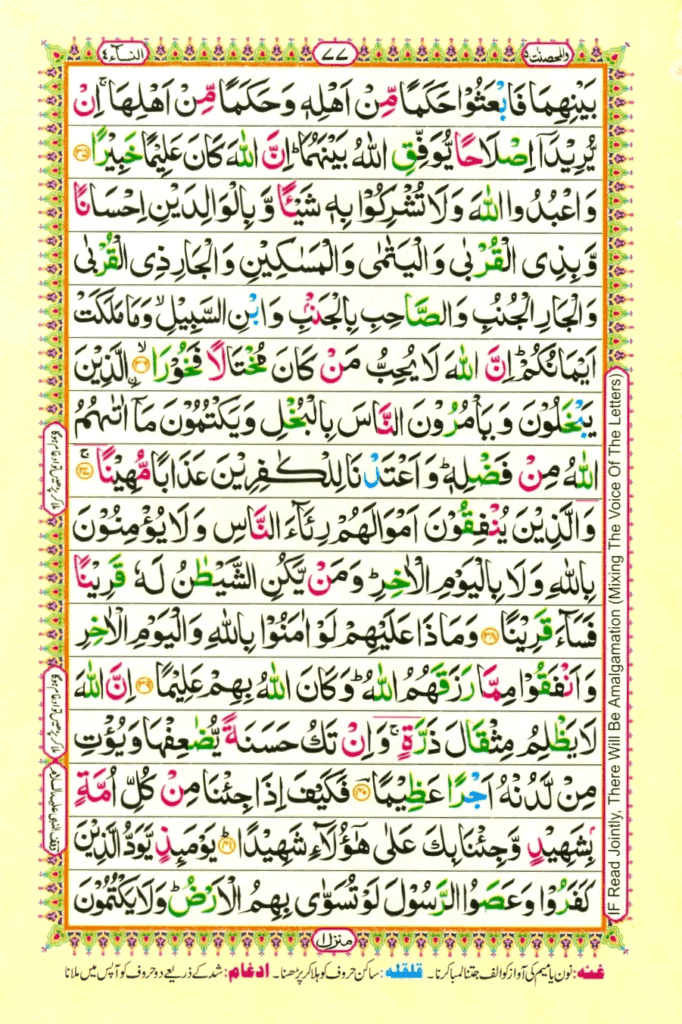 النسآء ٤
٧٧
والمحصنت ٥
بَيْنِهِمَا فَابْعَثُوْا حَكَمًا مِّنْ اَهْلِهٖ وَ حَكَمًا مِّنْ اَهْلِهَا ۚ اِنْ
يُّرِيْدَاۤ اِصْلَاحًا يُّوَفِّقِ اللّٰهُ بَيْنَهُمَا ؕ اِنَّ اللّٰهَ كَانَ عَلِيْمًا خَبِيْرًا ﴿۳۵﴾
وَ اعْبُدُوا اللّٰهَ وَ لَا تُشْرِكُوْا بِهٖ شَيْـًٔا وَّ بِالْوَالِدَيْنِ اِحْسَانًا
وَّ بِذِى الْقُرْبٰى وَ الْيَتٰمٰى وَ الْمَسٰكِيْنِ وَ الْجَارِ ذِى الْقُرْبٰى
وَ الْجَارِ الْجُنُبِ وَ الصَّاحِبِ بِالْجَنْۢبِ وَ ابْنِ السَّبِيْلِ ۙ وَ مَا مَلَكَتْ
اَيْمَانُكُمْ ؕ اِنَّ اللّٰهَ لَا يُحِبُّ مَنْ كَانَ مُخْتَالًا فَخُوْرَا ۙ﴿۳۶﴾ ۨالَّذِيْنَ
يَبْخَلُوْنَ وَ يَاْمُرُوْنَ النَّاسَ بِالْبُخْلِ وَ يَكْتُمُوْنَ مَاۤ اٰتٰىهُمُ
اللّٰهُ مِنْ فَضْلِهٖ ؕ وَ اَعْتَدْنَا لِلْكٰفِرِيْنَ عَذَابًا مُّهِيْنًا ۚ﴿۳۷﴾
وَ الَّذِيْنَ يُنْفِقُوْنَ اَمْوَالَهُمْ رِئَآءَ النَّاسِ وَ لَا يُؤْمِنُوْنَ
بِاللّٰهِ وَ لَا بِالْيَوْمِ الْاٰخِرِ ؕ وَ مَنْ يَّكُنِ الشَّيْطٰنُ لَهٗ قَرِيْنًا
فَسَآءَ قَرِيْنًا ﴿۳۸﴾ وَ مَا ذَا عَلَيْهِمْ لَوْ اٰمَنُوْا بِاللّٰهِ وَ الْيَوْمِ الْاٰخِرِ
وَ اَنْفَقُوْا مِمَّا رَزَقَهُمُ اللّٰهُ ؕ وَ كَانَ اللّٰهُ بِهِمْ عَلِيْمًا ﴿۳۹﴾ اِنَّ اللّٰهَ
لَا يَظْلِمُ مِثْقَالَ ذَرَّةٍ ۚ وَ اِنْ تَكُ حَسَنَةً يُّضٰعِفْهَا وَ يُؤْتِ
مِنْ لَّدُنْهُ اَجْرًا عَظِيْمًا ﴿۴۰﴾ فَكَيْفَ اِذَا جِئْنَا مِنْ كُلِّ اُمَّةٍۭ
بِشَهِيْدٍ وَّ جِئْنَا بِكَ عَلٰى هٰۤؤُلَآءِ شَهِيْدًا ﴿۴۱﴾ؕ يَوْمَئِذٍ يَّوَدُّ الَّذِيْنَ
كَفَرُوْا وَ عَصَوُا الرَّسُوْلَ لَوْ تُسَوّٰى بِهِمُ الْاَرْضُ ؕ وَ لَا يَكْتُمُوْنَ
منزل ۱
غنه: نون یا میم کی آواز کو الف جتنا لمبا کرنا۔ قلقله: ساکن حروف کو ہلا کر پڑھنا۔ ادغام: شد کے ذریعے دو حروف کو آپس میں ملانا
IF Read Jointly, There Will Be Amalgamation (Mixing The Voice Of The Letters)
وقف النبی علیہ السلام